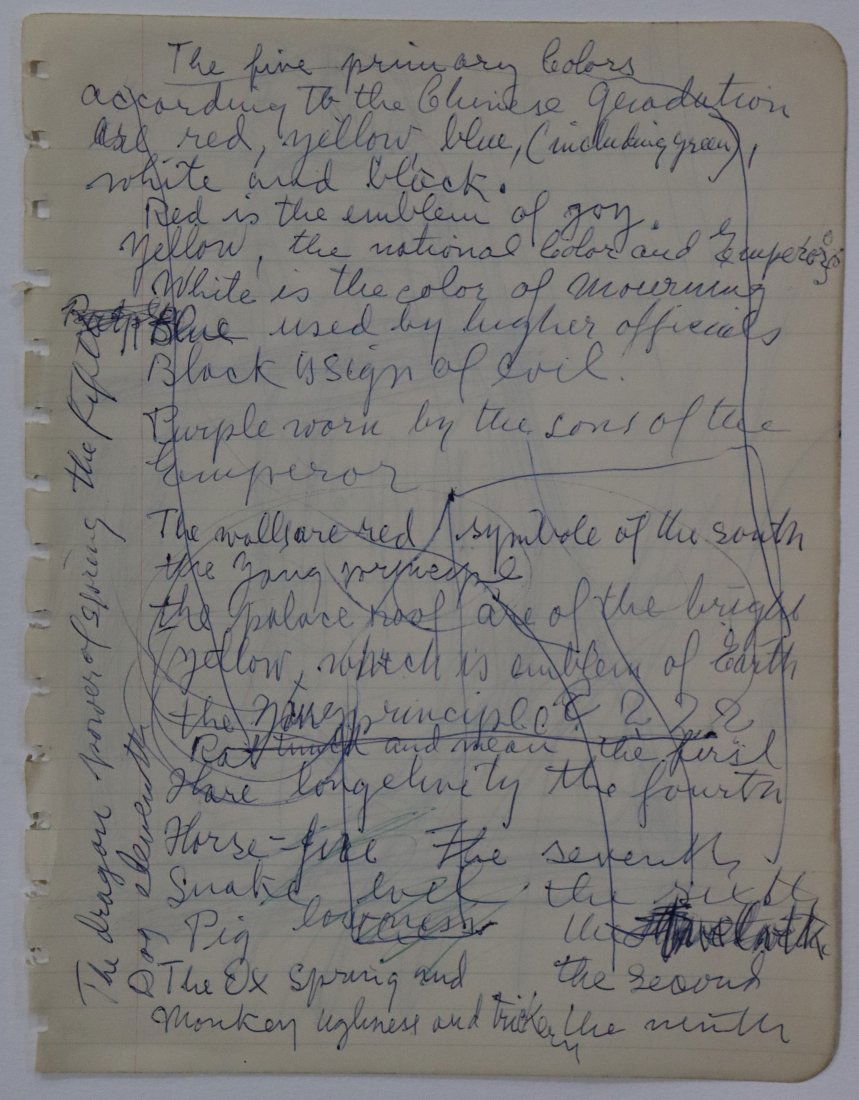 The five primary Colors
according to the Chinese gradution
are red, yellow blue, (including green),
white and black.
Red is the emblem of joy.
Yellow, the national Color and Emperors
White is the color of mourning
Blue used by higher officials
Black is sign of evil.
Purple worn by the sons of the
Emperor
The walls are red symbole of the south
the Yang principle
the palace roof are of the bright
yellow, which is emblem of Earth
the principle
Rat and mean the first
Hare longelivity the fourth
Horse-fire The seventh
Snake evel the sixth
Pig the
The Ox Spring and the second
Monkey Ugliness and trickery the ninth
The dragon power of spring the fifth
Dog eleventh